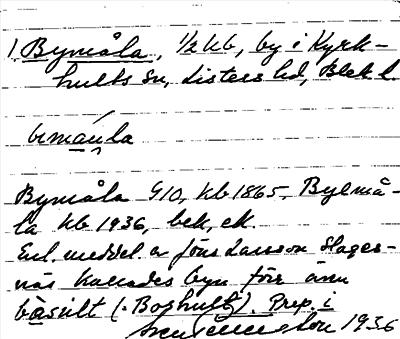 1. Bymåla, 1/2 kb, by i Kyrk-
hults sn, Listers hd, Blek l.
bimǻla
Bymåla G10, kb 1865, Byemå-
la kb 1936, bek, ek.
Enl. meddel. av Jöns Larsson Slages-
näs kallades byn förr även
båsult (: Boghult). Prep. i
1936